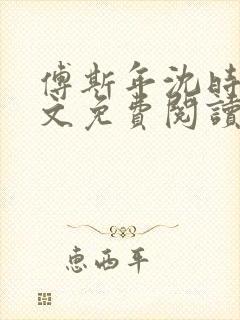 傅斯年沈時
文免費閱讀
惠西平